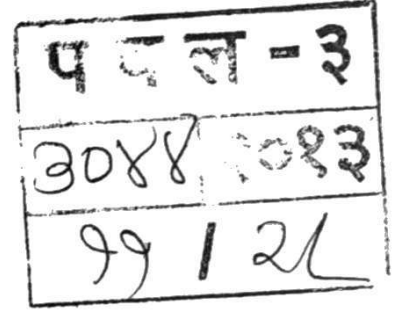 प व ल - ३
३०४४ २०१३
११ / २८